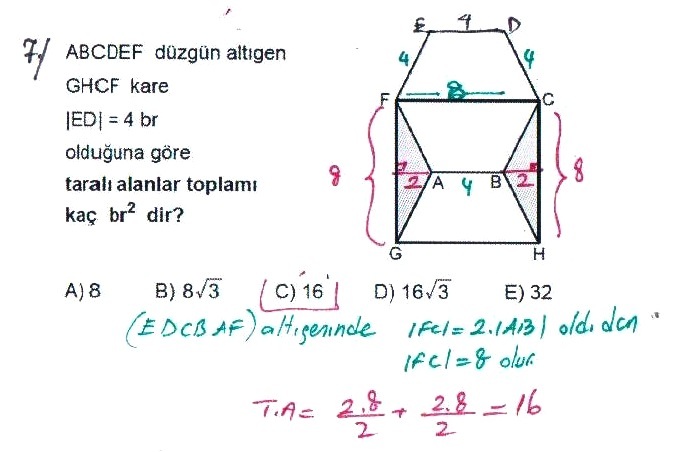 7)
ABCDEF düzgün altıgen
GHCF kare
|ED| = 4 br
olduğuna göre
taralı alanlar toplamı
kaç br² dir?
E 4 D
4 4
F 8 C
8 2 A 4 B 2 8
G H
A) 8 B) 8√3 C) 16 D) 16√3 E) 32
(EDCBAF) altıgeninde |FC| = 2.|AB| old. dan
|FC| = 8 olur.
T.A = 2.8/2 + 2.8/2 = 16